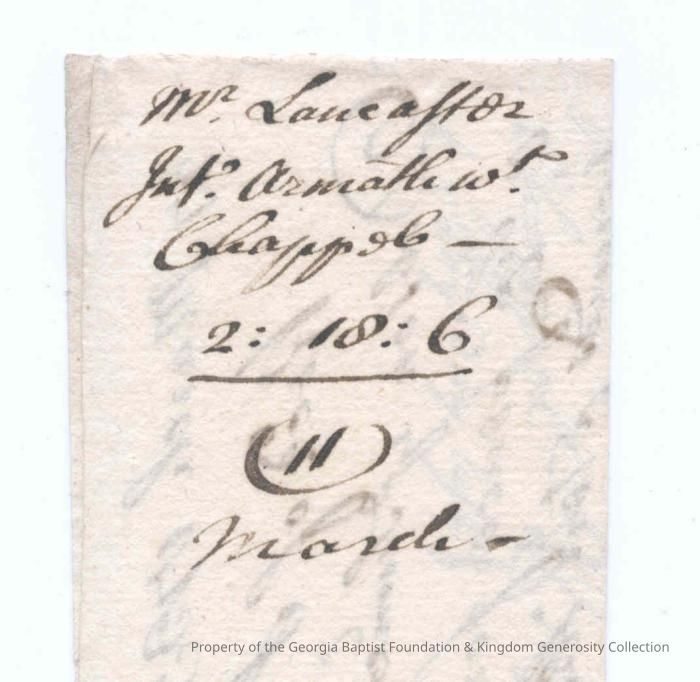 Mr. Lancaster
Int. Armathwt.
Chappel —
2: 18: 6
(11)
March -
Property of the Georgia Baptist Foundation & Kingdom Generosity Collection